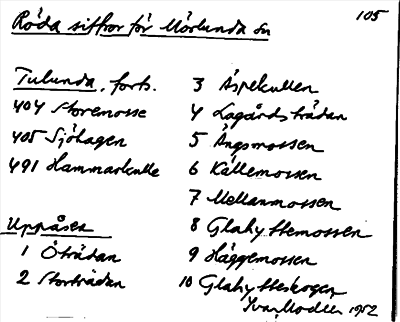 Röda siffror för Mörlunda sn
105
Tulunda, forts.
404 Storemosse
405 Sjöhagen
491 Hammarkulle
Uppåsen
1 Öträdan
2 Storträdan
3 Äspekullen
4 Lagårdsträdan
5 Ängsmossen
6 Källemossen
7 Mellanmossen
8 Glahyttemossen
9 Häggemossen
10 Glahytteskogen
Ivar Modéer 1952